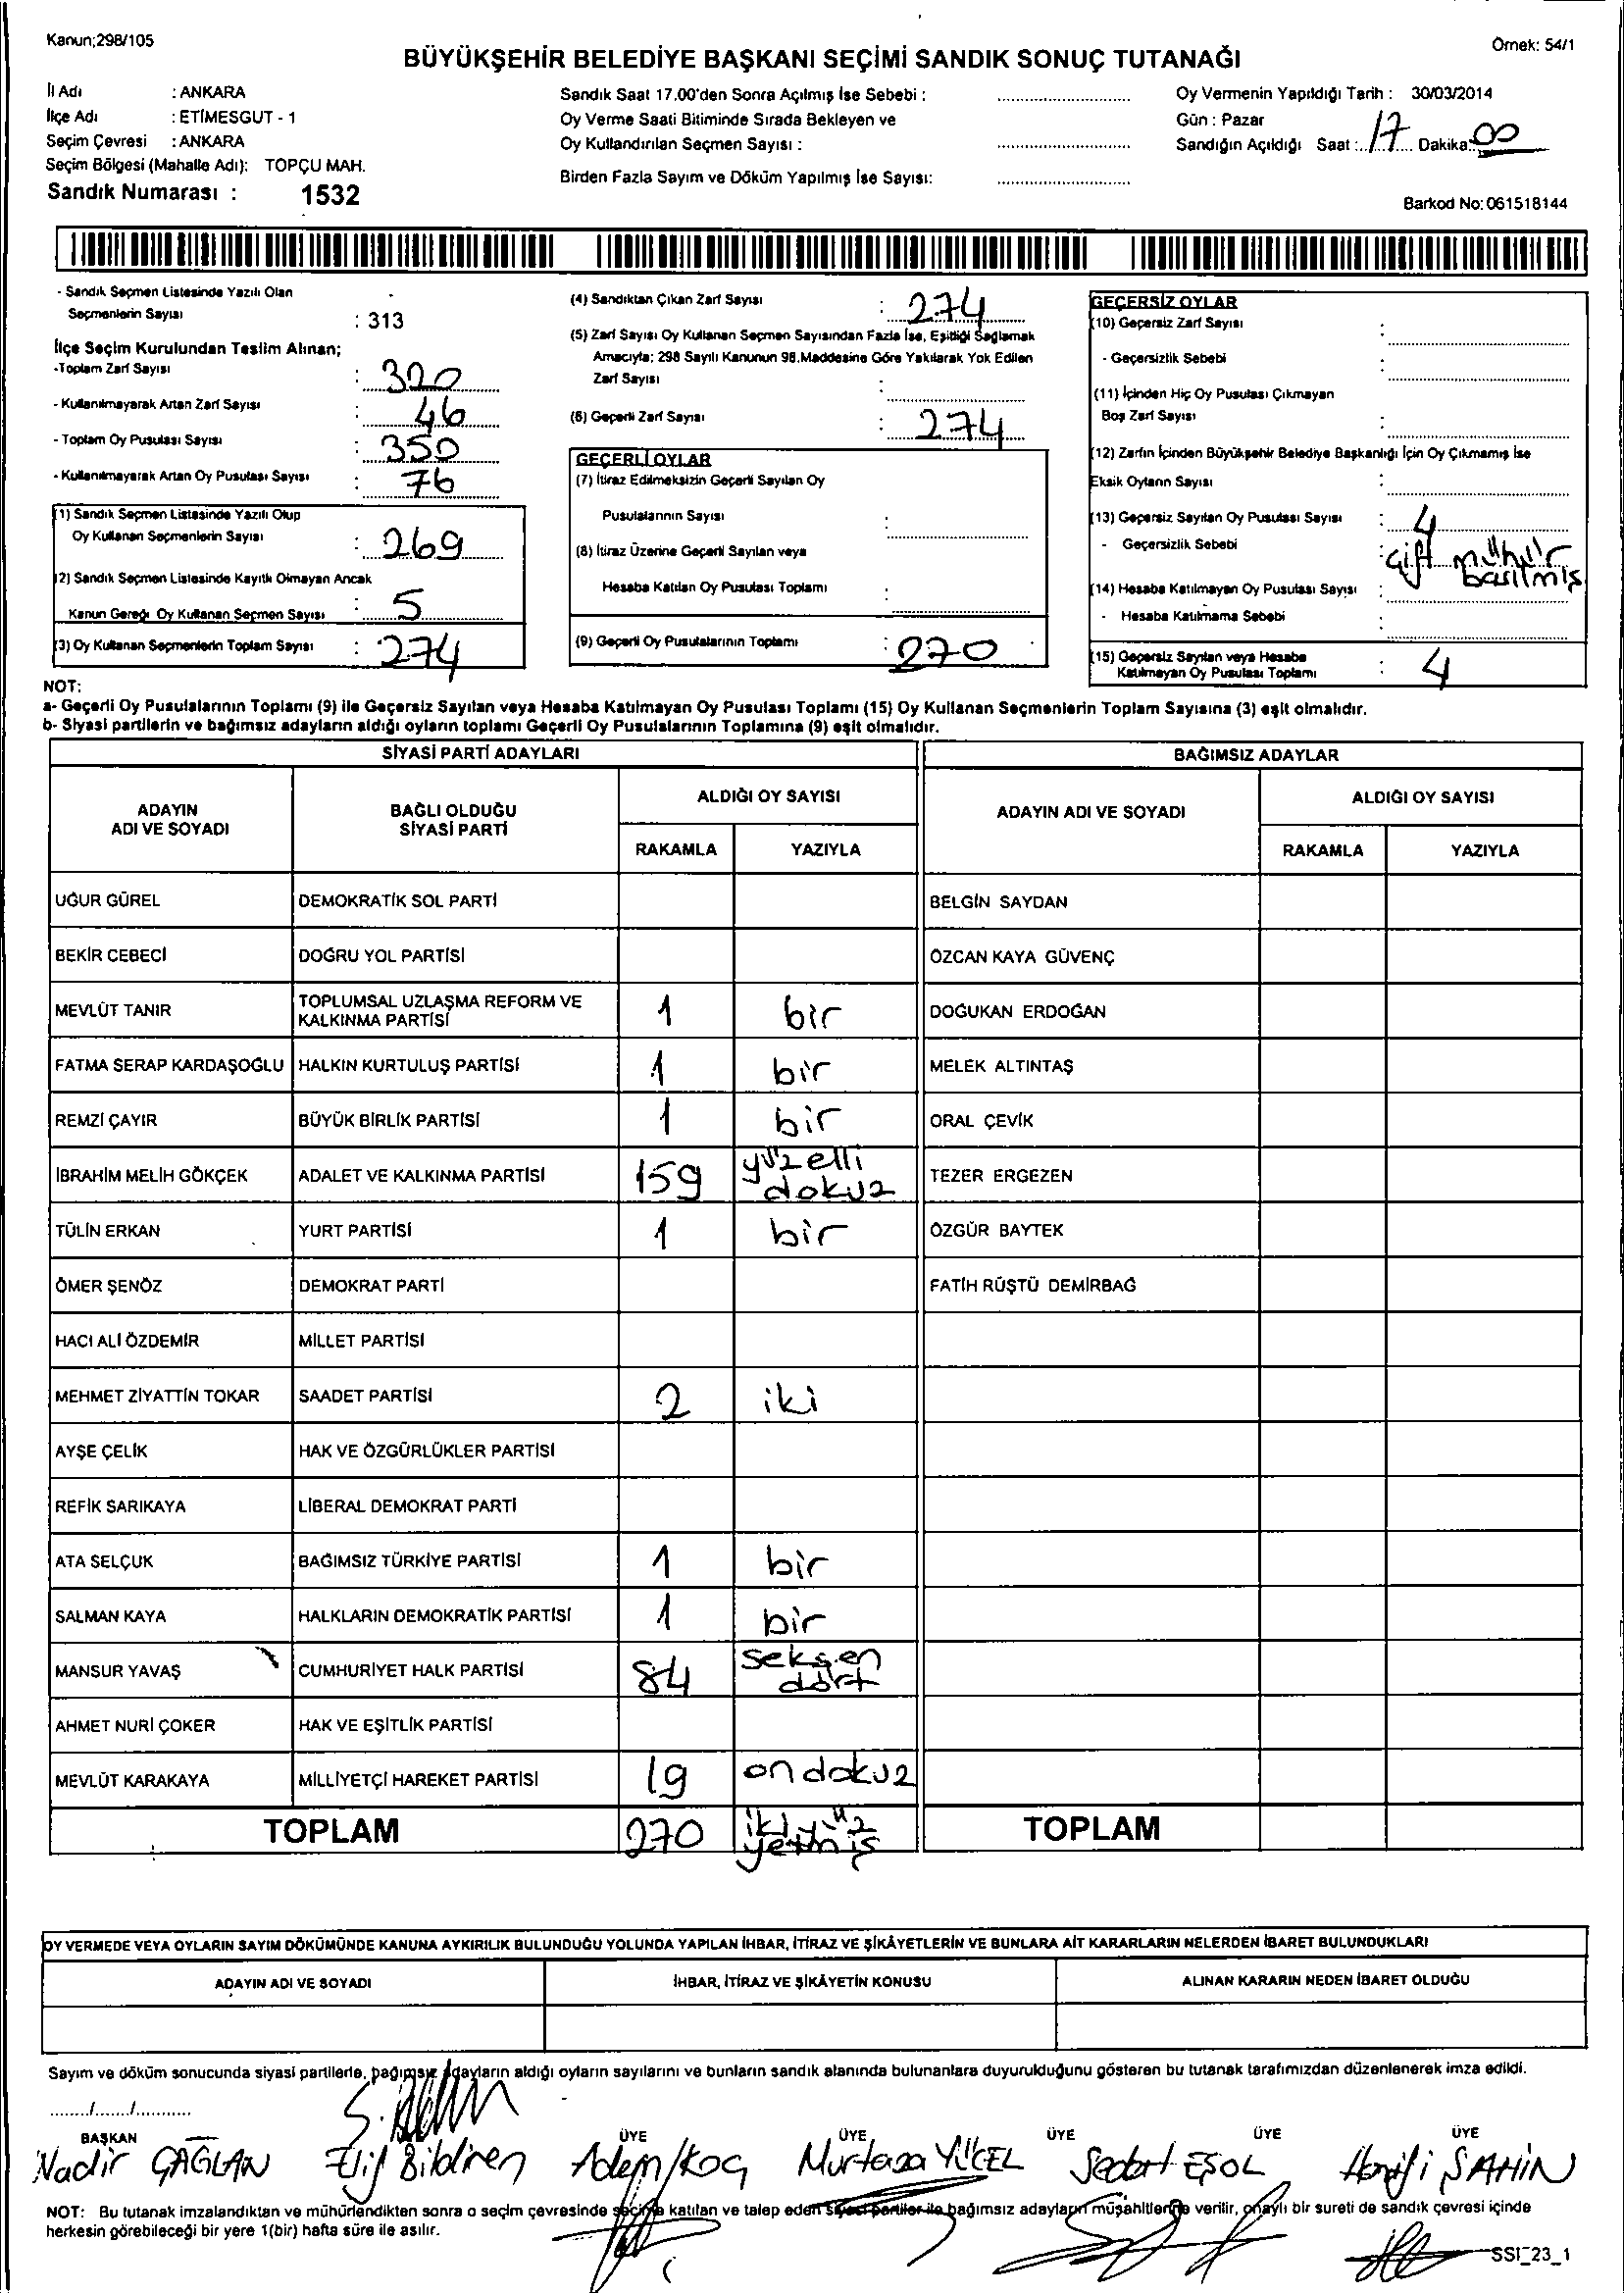 Kanun;298/105
Örnek: 54/1
BÜYÜKŞEHİR BELEDİYE BAŞKANI SEÇİMİ SANDIK SONUÇ TUTANAĞI
İl Adı : ANKARA
İlçe Adı : ETİMESGUT - 1
Seçim Çevresi : ANKARA
Seçim Bölgesi (Mahalle Adı): TOPÇU MAH.
Sandık Numarası : 1532
Sandık Saat 17.00'den Sonra Açılmış İse Sebebi : ........................
Oy Verme Saati Bitiminde Sırada Bekleyen ve
Oy Kullandırılan Seçmen Sayısı : ........................
Birden Fazla Sayım ve Döküm Yapılmış İse Sayısı: ........................
Oy Vermenin Yapıldığı Tarih : 30/03/2014
Gün : Pazar
Sandığın Açıldığı Saat : 17 Dakika: 00
Barkod No: 061518144
- Sandık Seçmen Listesinde Yazılı Olan
Seçmenlerin Sayısı : 313
İlçe Seçim Kurulundan Teslim Alınan;
-Toplam Zarf Sayısı : 320
- Kullanılmayarak Artan Zarf Sayısı : 46
- Toplam Oy Pusulası Sayısı : 350
- Kullanılmayarak Artan Oy Pusulası Sayısı : 76
(1) Sandık Seçmen Listesinde Yazılı Olup
Oy Kullanan Seçmenlerin Sayısı : 269
(2) Sandık Seçmen Listesinde Kayıtlı Olmayan Ancak
Kanun Gereği Oy Kullanan Seçmen Sayısı : 5
(3) Oy Kullanan Seçmenlerin Toplam Sayısı : 274
(4) Sandıktan Çıkan Zarf Sayısı : 274
(5) Zarf Sayısı Oy Kullanan Seçmen Sayısından Fazla İse, Eşitliği Sağlamak
Amacıyla; 298 Sayılı Kanunun 98.Maddesine Göre Yakılarak Yok Edilen
Zarf Sayısı :
(6) Geçerli Zarf Sayısı : 274
GEÇERLİ OYLAR
(7) İtiraz Edilmeksizin Geçerli Sayılan Oy
Pusulalarının Sayısı :
(8) İtiraz Üzerine Geçerli Sayılan veya
Hesaba Katılan Oy Pusulası Toplamı :
(9) Geçerli Oy Pusulalarının Toplamı : 270
GEÇERSİZ OYLAR
(10) Geçersiz Zarf Sayısı :
- Geçersizlik Sebebi :
(11) İçinden Hiç Oy Pusulası Çıkmayan
Boş Zarf Sayısı :
(12) Zarfın İçinden Büyükşehir Belediye Başkanlığı İçin Oy Çıkmamış İse
Eksik Oyların Sayısı :
(13) Geçersiz Sayılan Oy Pusulası Sayısı : 4
- Geçersizlik Sebebi : çift mühür basılmış
(14) Hesaba Katılmayan Oy Pusulası Sayısı :
- Hesaba Katılmama Sebebi :
(15) Geçersiz Sayılan veya Hesaba
Katılmayan Oy Pusulası Toplamı : 4
NOT:
a- Geçerli Oy Pusulalarının Toplamı (9) ile Geçersiz Sayılan veya Hesaba Katılmayan Oy Pusulası Toplamı (15) Oy Kullanan Seçmenlerin Toplam Sayısına (3) eşit olmalıdır.
b- Siyasi partilerin ve bağımsız adayların aldığı oyların toplamı Geçerli Oy Pusulalarının Toplamına (9) eşit olmalıdır.
SİYASİ PARTİ ADAYLARI BAĞIMSIZ ADAYLAR
ADAYIN ADI VE SOYADI BAĞLI OLDUĞU SİYASİ PARTİ ALDIĞI OY SAYISI ADAYIN ADI VE SOYADI ALDIĞI OY SAYISI
RAKAMLA YAZIYLA RAKAMLA YAZIYLA
UĞUR GÜREL DEMOKRATİK SOL PARTİ BELGİN SAYDAN
BEKİR CEBECİ DOĞRU YOL PARTİSİ ÖZCAN KAYA GÜVENÇ
MEVLÜT TANIR TOPLUMSAL UZLAŞMA REFORM VE KALKINMA PARTİSİ 1 bir DOĞUKAN ERDOĞAN
FATMA SERAP KARDAŞOĞLU HALKIN KURTULUŞ PARTİSİ 1 bir MELEK ALTINTAŞ
REMZİ ÇAYIR BÜYÜK BİRLİK PARTİSİ 1 bir ORAL ÇEVİK
İBRAHİM MELİH GÖKÇEK ADALET VE KALKINMA PARTİSİ 159 yüzelli dokuz TEZER ERGEZEN
TÜLİN ERKAN YURT PARTİSİ 1 bir ÖZGÜR BAYTEK
ÖMER ŞENÖZ DEMOKRAT PARTİ FATİH RÜŞTÜ DEMİRBAĞ
HACI ALİ ÖZDEMİR MİLLET PARTİSİ
MEHMET ZİYATTİN TOKAR SAADET PARTİSİ 2 iki
AYŞE ÇELİK HAK VE ÖZGÜRLÜKLER PARTİSİ
REFİK SARIKAYA LİBERAL DEMOKRAT PARTİ
ATA SELÇUK BAĞIMSIZ TÜRKİYE PARTİSİ 1 bir
SALMAN KAYA HALKLARIN DEMOKRATİK PARTİSİ 1 bir
MANSUR YAVAŞ CUMHURİYET HALK PARTİSİ 84 seksen dört
AHMET NURİ ÇOKER HAK VE EŞİTLİK PARTİSİ
MEVLÜT KARAKAYA MİLLİYETÇİ HAREKET PARTİSİ 19 on dokuz
TOPLAM 270 iki yüz yetmiş TOPLAM
OY VERMEDE VEYA OYLARIN SAYIM DÖKÜMÜNDE KANUNA AYKIRILIK BULUNDUĞU YOLUNDA YAPILAN İHBAR, İTİRAZ VE ŞİKÂYETLERİN VE BUNLARA AİT KARARLARIN NELERDEN İBARET BULUNDUKLARI
ADAYIN ADI VE SOYADI İHBAR, İTİRAZ VE ŞİKÂYETİN KONUSU ALINAN KARARIN NEDEN İBARET OLDUĞU
Sayım ve döküm sonucunda siyasi partilerle, bağımsız adayların aldığı oyların sayılarını ve bunların sandık alanında bulunanlara duyurulduğunu gösteren bu tutanak tarafımızdan düzenlenerek imza edildi.
......../......../............
BAŞKAN ÜYE ÜYE ÜYE ÜYE ÜYE
Nadir ÇAĞLAN Elif Bildiren Adem Koç Murtaza YÜCEL Sedat EŞOL Hanifi ŞAHİN
NOT: Bu tutanak imzalandıktan ve mühürlendikten sonra o seçim çevresinde seçime katılan ve talep eden siyasi partiler ile bağımsız adayların müşahitlerine verilir, onaylı bir sureti de sandık çevresi içinde
herkesin görebileceği bir yere 1(bir) hafta süre ile asılır.
SSI_23_1